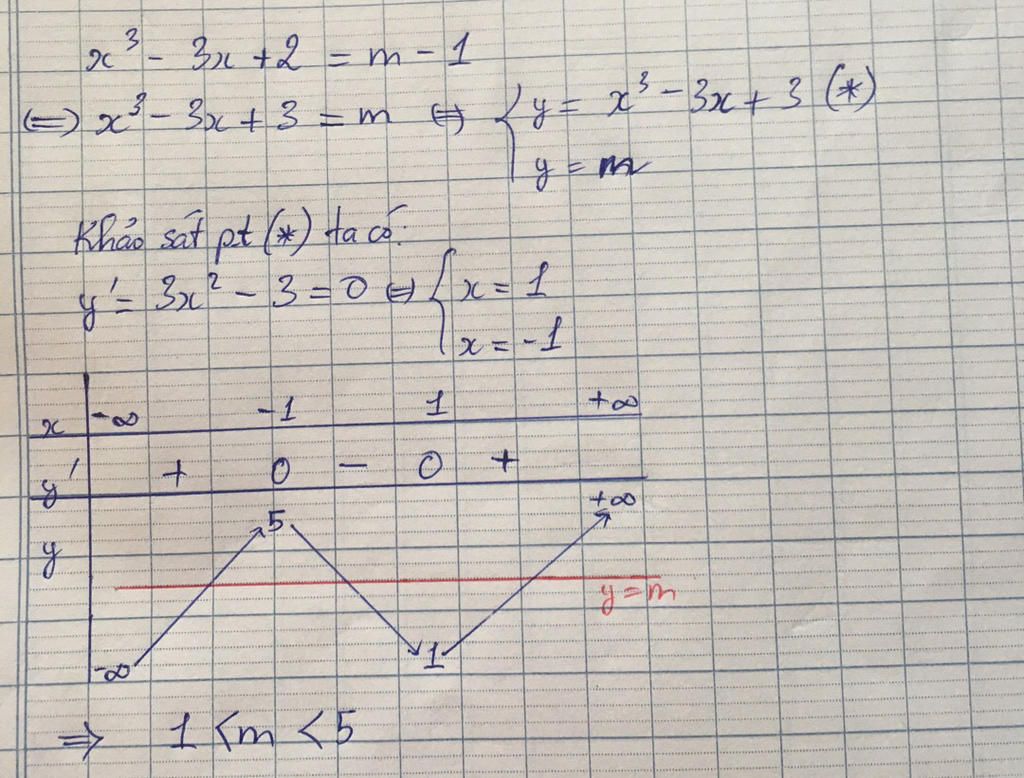 x³ - 3x + 2 = m - 1
(=) x³ - 3x + 3 = m (=) { y = x³ - 3x + 3 (*)
y = m
Khảo sát pt (*) ta có:
y' = 3x² - 3 = 0 (=) { x = 1
x = -1
x -∞ -1 1 +∞
y' + 0 - 0 +
+∞
5
y
y = m
-∞ 1
⇒ 1 < m < 5